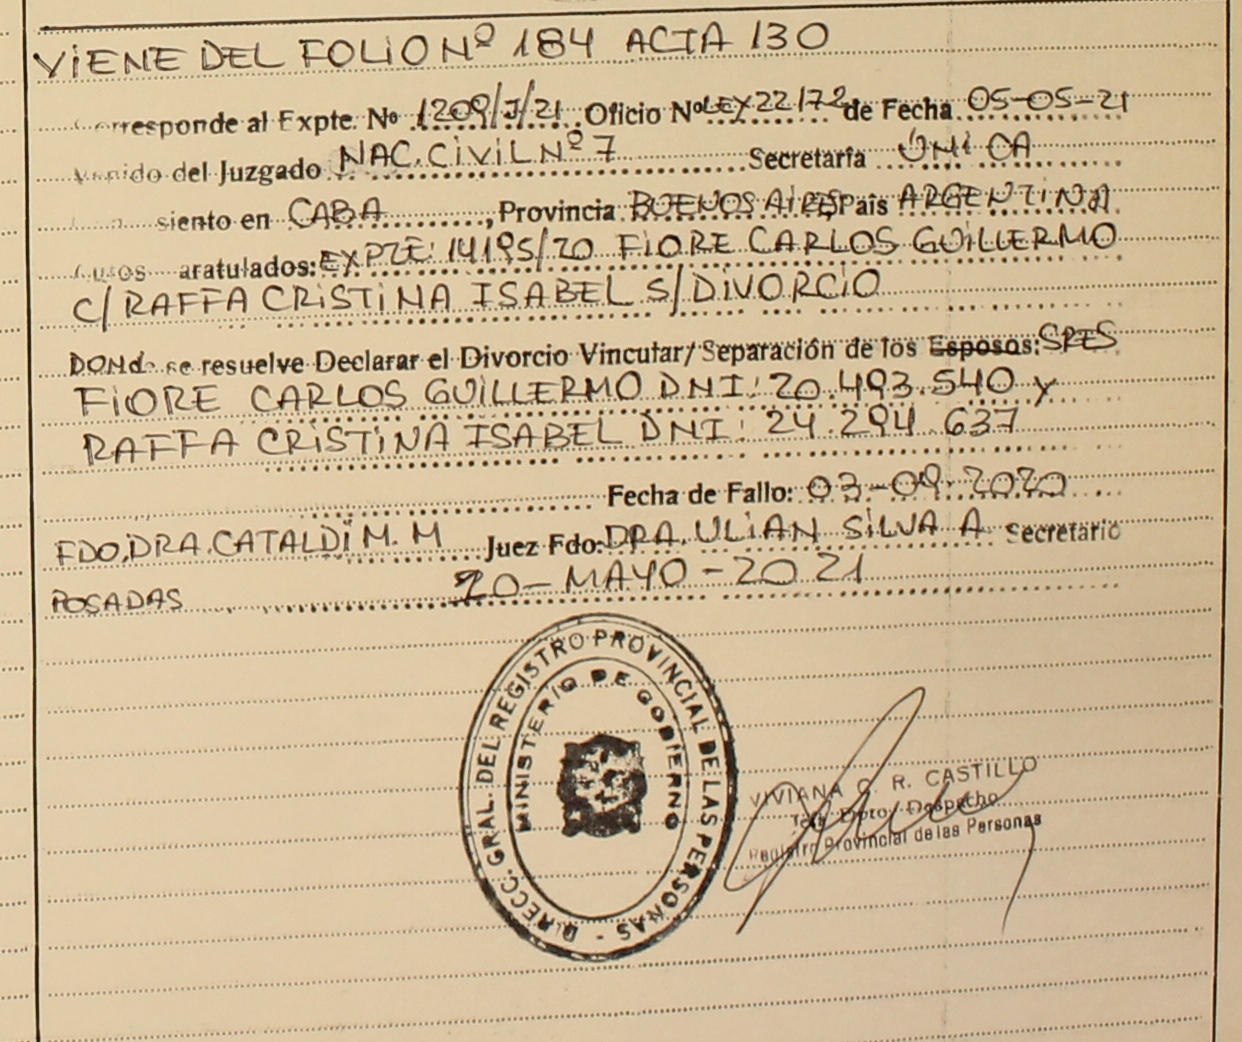 VIENE DEL FOLIO Nº 184 ACTA 130
rresponde al Expte. Nº 1209/J/21 Oficio Nº LEX 22172 de Fecha 05-05-21
del Juzgado NAC. CIVIL Nº 7 Secretaría ÚNICA
siento en CABA, Provincia BUENOS AIRES País ARGENTINA
aratulados: EXPTE: 14195/20 FIORE CARLOS GUILLERMO
C/ RAFFA CRISTINA ISABEL S/ DIVORCIO
DONd se resuelve Declarar el Divorcio Vincular/Separación de los Esposos: SRES
FIORE CARLOS GUILLERMO DNI: 20.493.540 y
RAFFA CRISTINA ISABEL DNI: 24.294.637
Fecha de Fallo: 03-09-2020
FDO. DRA. CATALDI M. M Juez Fdo: DRA. ULIAN SILVA A Secretario
POSADAS 20-MAYO-2021
DIRECC. GRAL. DEL REGISTRO PROVINCIAL DE LAS PERSONAS -
MINISTERIO DE GOBIERNO
VIVIANA R. CASTILLO
Dpto. Despacho
Registro Provincial de las Personas